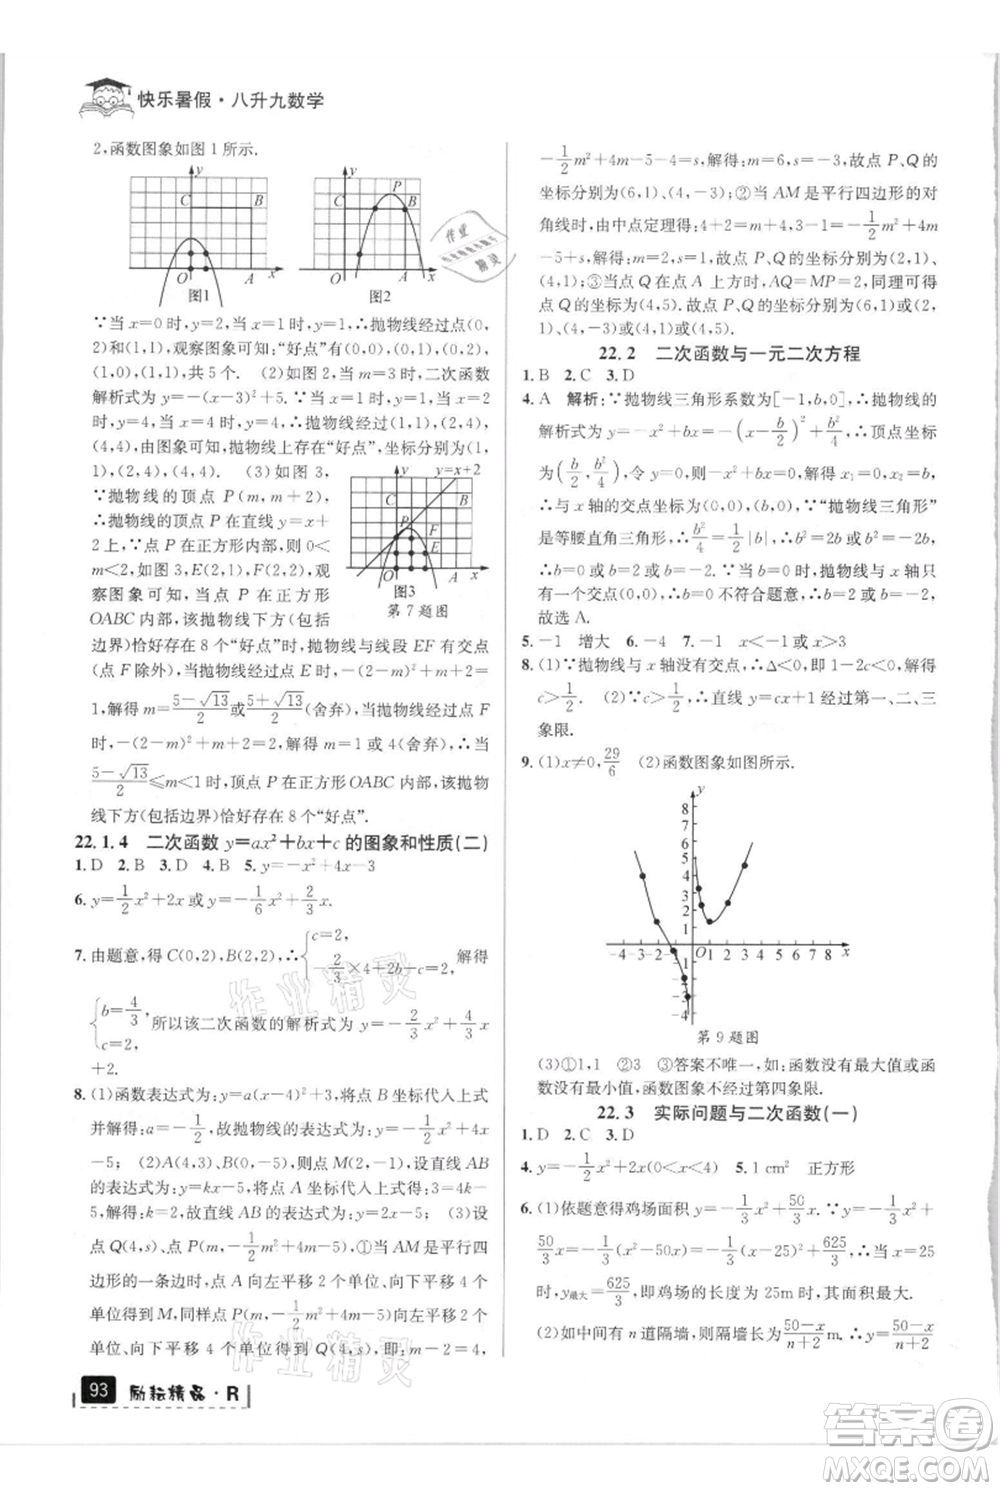 快乐暑假·八升九数学
2,函数图象如图1所示.
y C B O A x 图1
y P C B O A x 图2
∵当x=0时,y=1,∴抛物线经过点(0,
2)和(1,1),观察图象可知:“好点”有:(0,0),
(1,0),共5个. (2)如图2,当m=3时,二次函数
解析式为y=-(x-3)²+5.
(4,4),由图象可知,抛物线上存在“好点”,坐标分别为(1,
(3)如图3,
y y=x+2 C B P F E O A x 图3
第7题图
∵抛物线的顶点P(m,m+2),∴
抛物线的顶点P在直线y=x+
2上,∵点P在正方形内部,则0<
m<2,如图3,E(2,1),F(2,2),观
察图象可知,当点P在正方形
OABC内部,该抛物线下方(包括
边界)恰好存在8个“好点”时,抛物线与线段EF有交点
(点F除外),当抛物线经过点E时,-(2-m)²+m+2=
1,解得m=(5-√13)/2或(5+√13)/2(舍弃),当抛物线经过点F
时,-(2-m)²+m+2=2,解得m=1或4(舍弃),∴当
(5-√13)/2≤m<1时,顶点P在正方形OABC内部,该抛物
线下方(包括边界)恰好存在8个“好点”.
22.1.4 二次函数y=ax²+bx+c的图象和性质(二)
1.D 2.B 3.D 4.B 5.y=-x²+4x-3
6.y=1/2x²+2x或y=-1/6x²+2/3x.
7.由题意,得C(0,2),B(2,2),∴{c=2, -2/3×4+2b+c=2, 解得
{b=4/3, c=2. 所以该二次函数的解析式为y=-2/3x²+4/3x
+2.
8.(1)函数表达式为:y=a(x-4)²+3,将点B坐标代入上式并
解得:a=-1/2,故抛物线的表达式为:y=-1/2x²+4x
-5; (2)A(4,3),B(0,-5),则点M(2,-1),设直线AB
的表达式为:y=kx-5,将点A坐标代入上式得:3=4k-5,
解得:k=2,故直线AB的表达式为:y=2x-5; (3)设
点Q(4,s),P(m,-1/2m²+4m-5),①当AM是平行四
边形的一条边时,点A向左平移2个单位、向下平移4个单
位得到M,同样点P(m,-1/2m²+4m-5)向左平移2个单
位、向下平移4个单位得到Q(4,s),即:m-2=4,
-1/2m²+4m-5-4=s,解得:m=6,s=-3,故点P、Q的
坐标分别为(6,1)、(4,-3);②当AM是平行四边形的对
角线时,由中点定理得:4+2=m+4,3-1=-1/2m²+4m
-5+s,解得:m=2,s=1,故点P、Q的坐标分别为(2,
1)、(4,1);③当点Q在点A上方时,AQ=MP=2,同理可得
点Q的坐标为(4,5).故点P、Q的坐标分别为(6,1)或(2,
1)、(4,-3)或(4,1)或(4,5).
22.2 二次函数与一元二次方程
1.B 2.C 3.D
4.A 解析:∵抛物线三角形系数为[-1,b,0],∴抛物线的
解析式为y=-x²+bx=-(x-b/2)²+b²/4,∴顶点坐标
为(b/2,b²/4),令y=0,则-x²+bx=0,解得x₁=0,x₂=b,
∴与x轴的交点坐标为(0,0),(b,0),∵“抛物线三角形”
是等腰直角三角形,∴b²/4=1/2|b|,∴b²=2b或b²=-2b,
∵b=0时,抛物线与x轴只有一个交点(0,0),∴b=0不符合题意,∴b=2或b=-2,
故选A.
5.-1 增大 6.-4 7.-1 x<-1或x>3
8.(1)∵抛物线与x轴没有交点,∴Δ<0,即1-2c<0,解得
c>1/2. (2)∵c>1/2,∴直线y=cx+1经过第一、二、三
象限.
9.(1)x≠0,29/6 (2)函数图象如图所示.
y 8 7 6 5 4 3 2 1 -4 -3 -2 -1 O 1 2 3 4 5 6 7 8 x -1 -2 -3 -4
第9题图
(3)①1,1 ②3 ③答案不唯一,如:函数没有最大值或函
数没有最小值,函数图象不经过第四象限.
22.3 实际问题与二次函数(一)
1.D 2.C 3.D
4.y=-1/2x²+2x(0<x<4) 5.1 cm² 正方形
6.(1)依题意得鸡场面积y=-1/3x²+50/3x.∵y=-1/3x²+
50/3x=-1/3(x²-50x)=-1/3(x-25)²+625/3,∴当x=25
时,y最大=625/3,即鸡场的长度为25m时,其面积最大.
(2)如中间有n道隔墙,则隔墙长为(50-x)/(n+2),∴y=(50-x)/(n+2)
93 励耘精品·R
作业精灵
答案圈
MXQE.COM